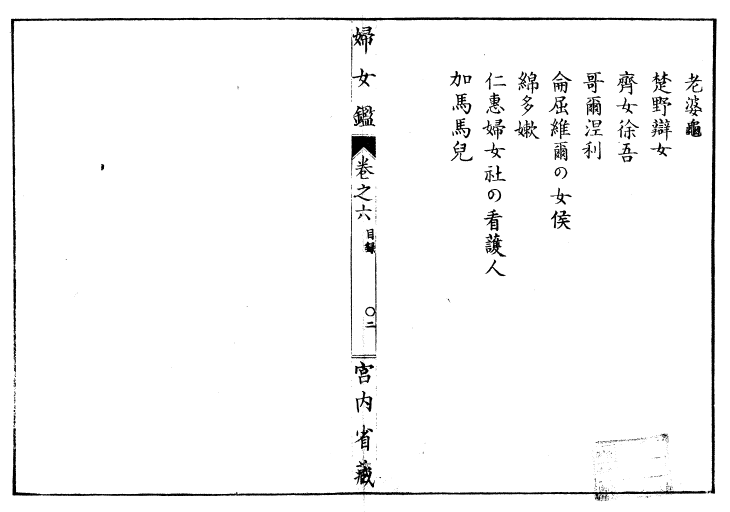 老婆龜
楚野辯女
齊女徐吾
哥爾涅利
侖屈維爾の女侯
綿多嫰
仁惠婦女社の看護人
加馬馬兒
婦女鑑
卷之六
目録
〇二
宮内省藏